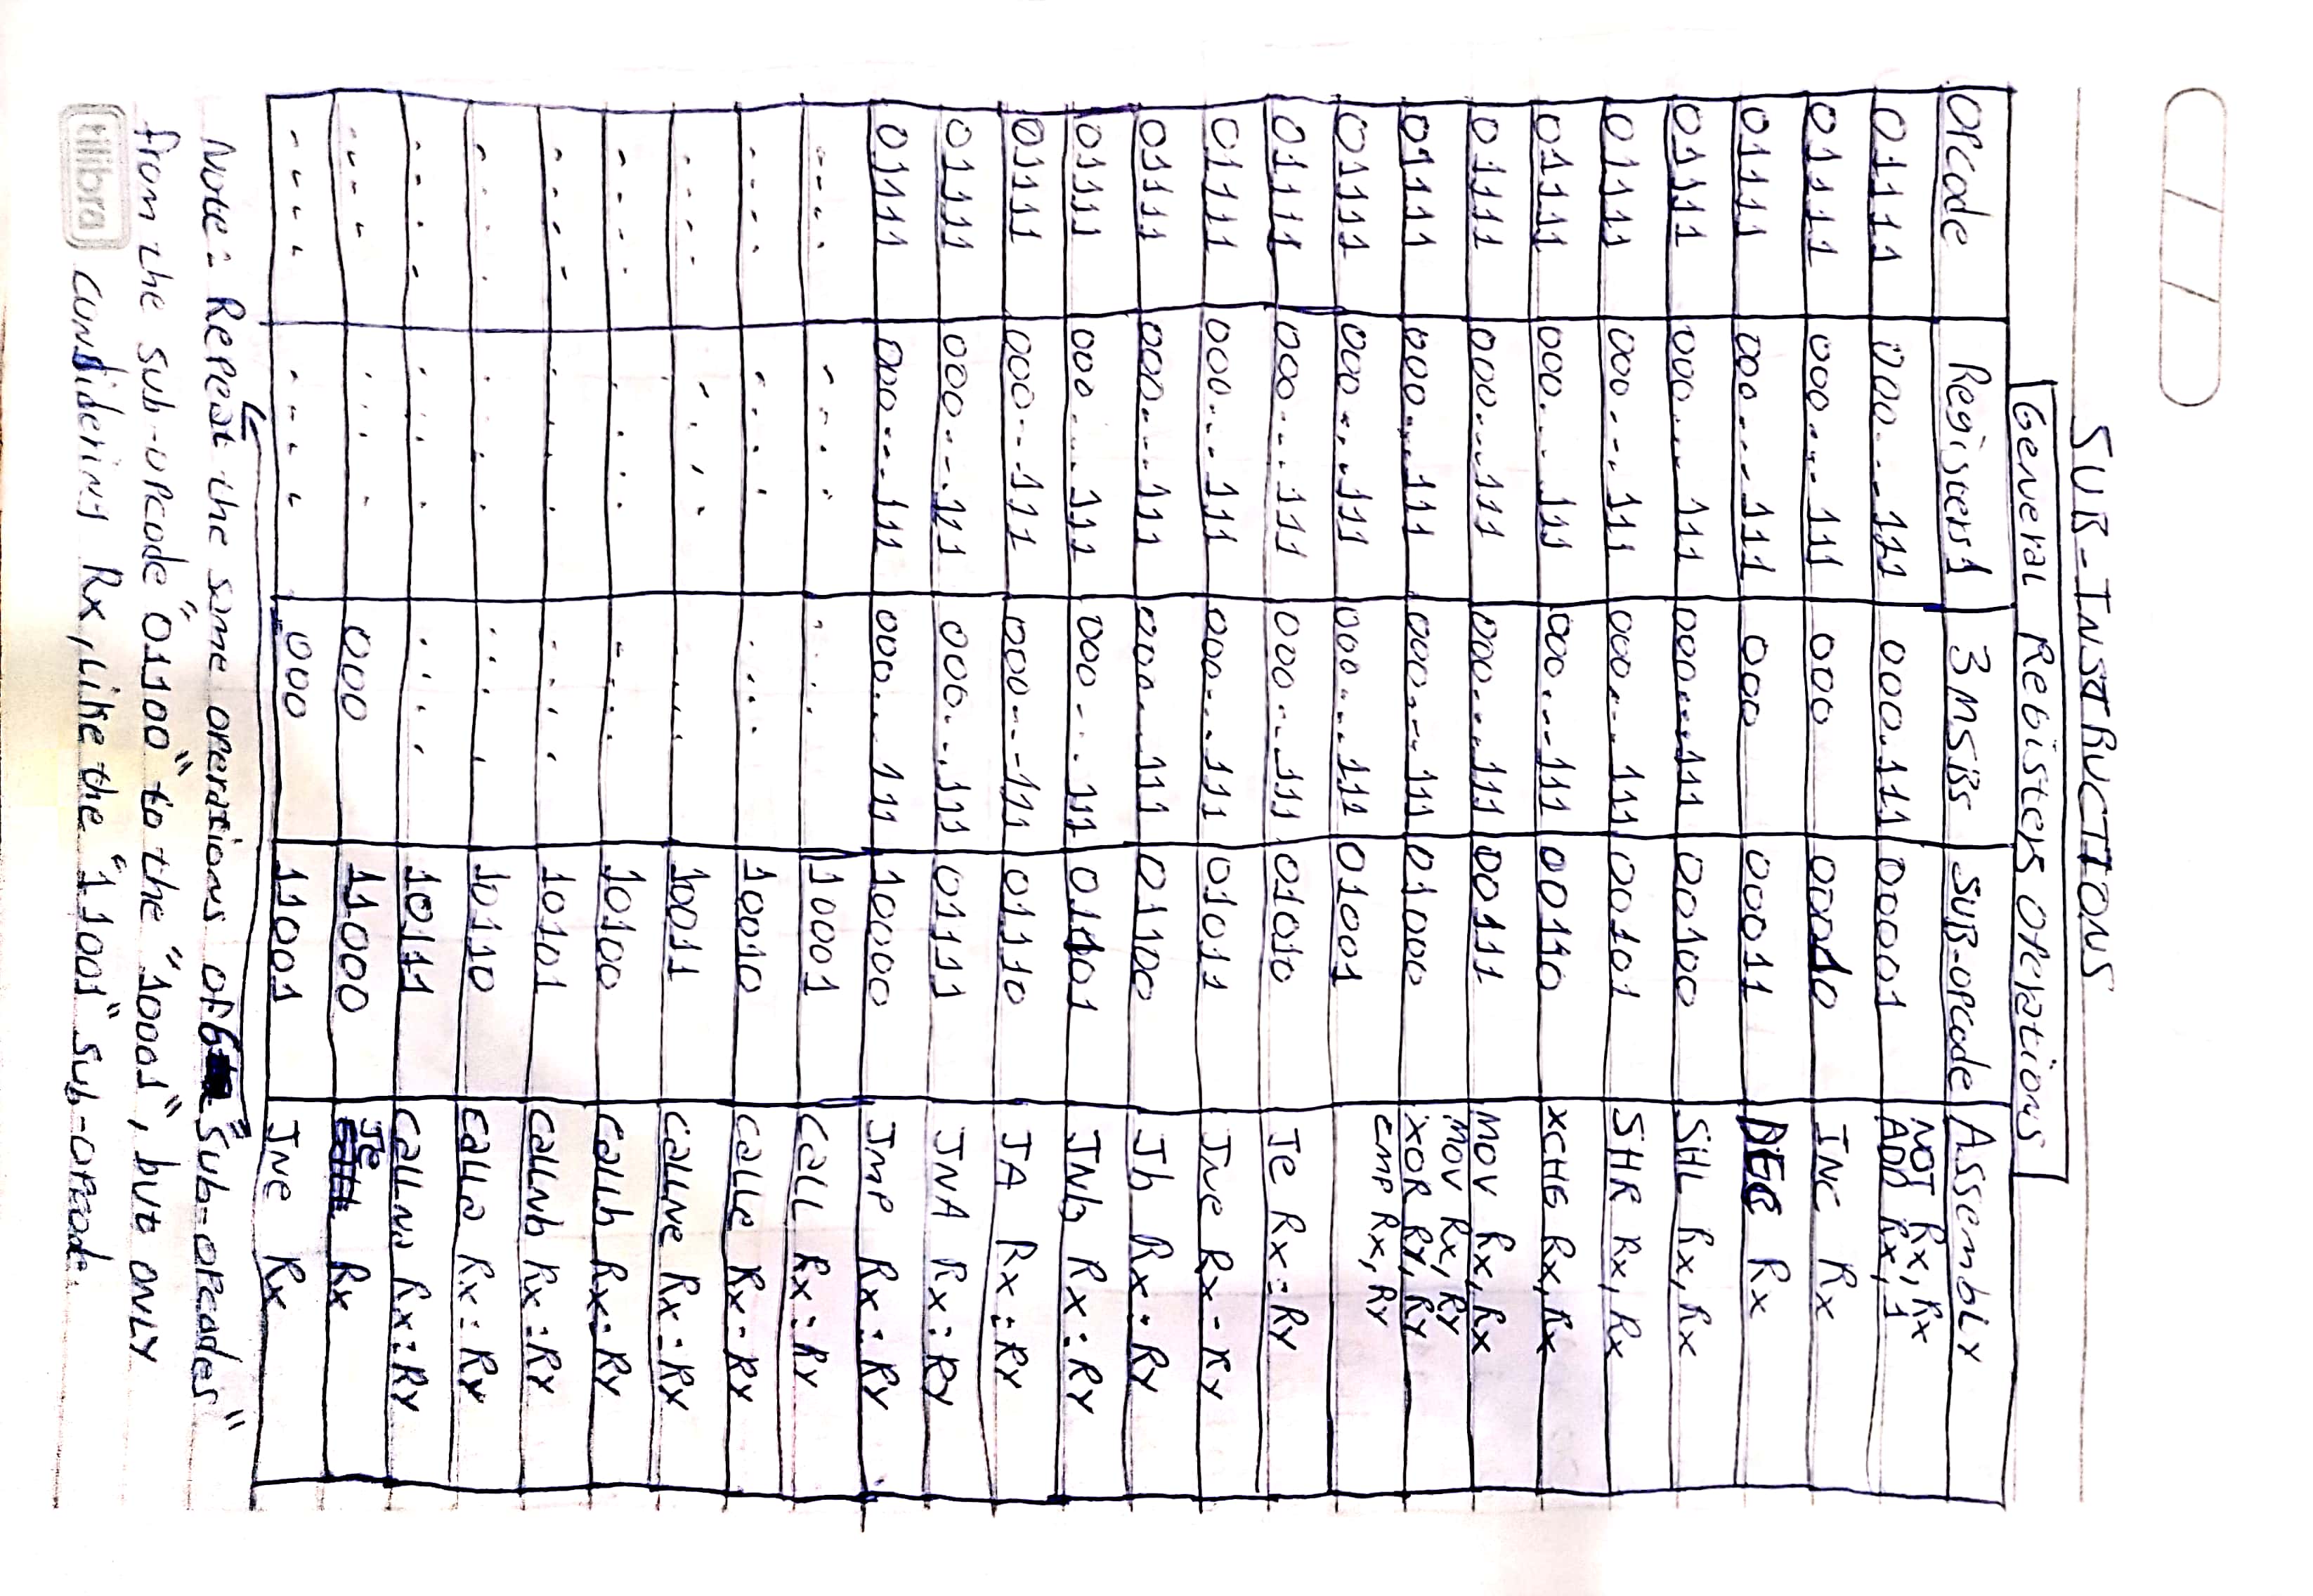 SUB-INSTRUCTIONS
General Registers Operations
Opcode Registers1 3MSBs SUB-opcode Assembly
NOT Rx, Rx
01111 000...111 000.111 00001 ADD Rx, 1
01111 000....111 000 00010 INC Rx
01111 000...111 000 00011 DEC Rx
01111 000....111 000....111 00100 SHL Rx, Rx
01111 000...111 000....111 00101 SHR Rx, Rx
01111 000....111 000...111 00110 XCHG Rx, Rx
01111 000...111 000...111 00111 MOV Rx, Rx
MOV Rx, RY
01111 000...111 000...111 01000 XOR RY, RY
CMP Rx, RY
01111 000...111 000...111 01001
01111 000...111 000...111 01010 Je Rx:RY
01111 000...111 000...111 01011 JNe Rx-RY
01111 000....111 000...111 01100 Jb Rx:RY
01111 000....111 000...111 01101 JNb Rx:RY
01111 000...111 000---111 01110 JA Rx:RY
01111 000....111 000...111 01111 JNA Rx:RY
01111 000...111 000...111 10000 JMP Rx:RY
.... .... .... 10001 CALL Rx:RY
.... .... .... 10010 CALLe Rx-RY
.... .... .... 10011 CALLNe Rx:RX
.... .... .... 10100 CALLb Rx:RY
.... .... .... 10101 CALLNb Rx:RY
.... .... .... 10110 CALLa Rx:RY
.... .... .... 10111 CALLNa Rx:RY
.... .... 000 11000 Je Rx
.... .... 000 11001 JNe Rx
Note: Repeat the same operations of 6 "Sub-opcodes"
from the sub-opcode "01100" to the "10001", but ONLY
considering Rx, Like the "11001" sub-opcode.
tilibra